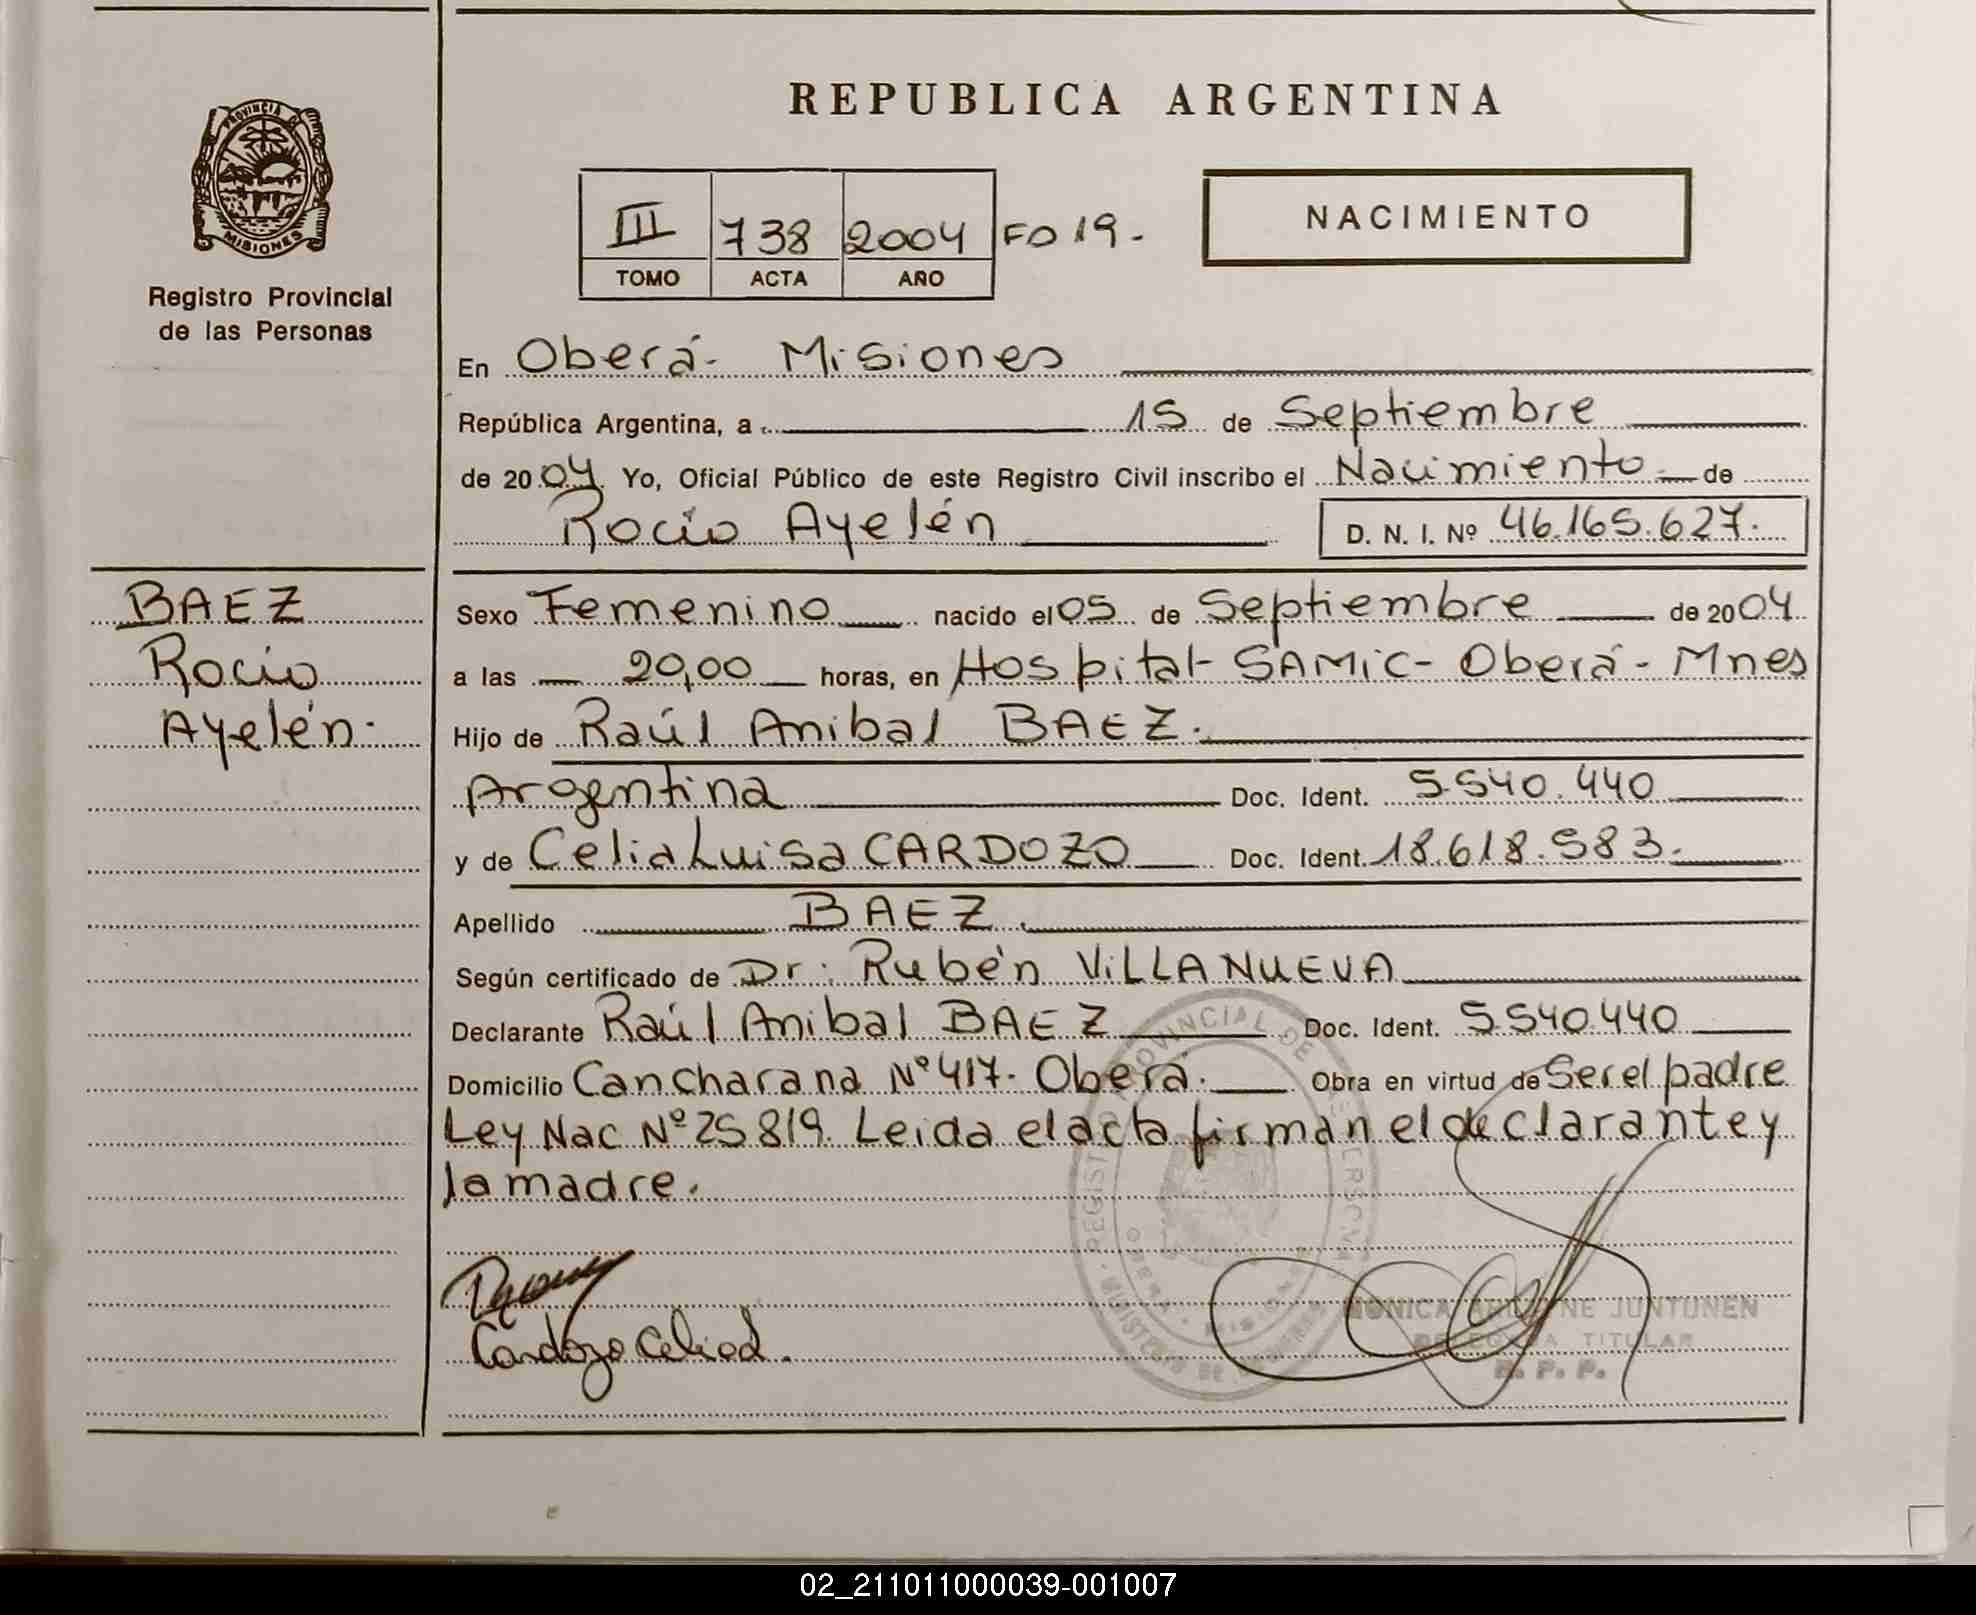 REPUBLICA ARGENTINA
PROVINCIA D
MISIONES
Registro Provincial
de las Personas
III 738 2004 FO 19.-
TOMO ACTA AÑO
NACIMIENTO
En Oberá- Misiones
República Argentina, a 15 de Septiembre
de 2004 Yo, Oficial Público de este Registro Civil inscribo el Nacimiento de
Rocío Ayelén D. N. I. Nº 46.165.627.
BAEZ
Rocío
Ayelén.
Sexo Femenino nacido el 05 de Septiembre de 2004
a las 20,00 horas, en Hospital- SAMIC- Oberá- Mnes
Hijo de Raúl Anibal BAEZ.
Argentina Doc. Ident. 5.540.440
y de Celia Luisa CARDOZO Doc. Ident. 18.618.583.
Apellido BAEZ.
Según certificado de Dr: Rubén VILLANUEVA
Declarante Raúl Anibal BAEZ Doc. Ident. 5.540.440
Domicilio Cancharana Nº 417. Oberá. Obra en virtud de Ser el padre
Ley Nac Nº 25819. Leida el acta firman el declarante y
la madre.
Cardozo Celia L.
REGISTRO PROVINCIAL DE
MONICA JUNTUNEN
DELEGADA TITULAR
R. P. P.
02_211011000039-001007